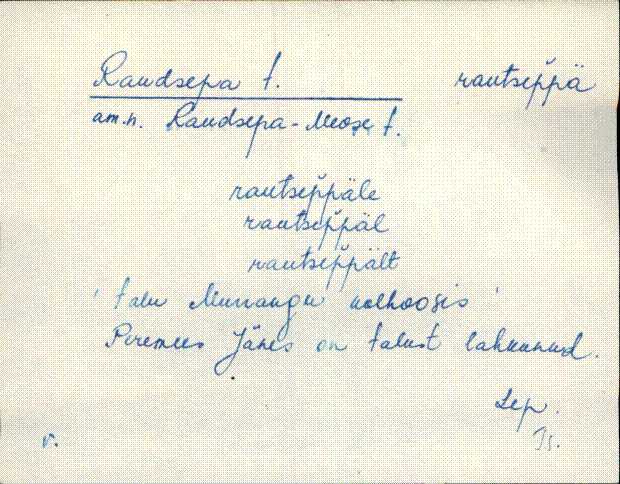 Raudsepa t. rautsep̌pä
am.n. Raudsepa-Meose t.
rautsep̌päle
rautsep̌päl
rautsep̌pält
' talu Munamäe kolhoosis '
Peremees Jänes on talust lahkunud.
Lep.
v.